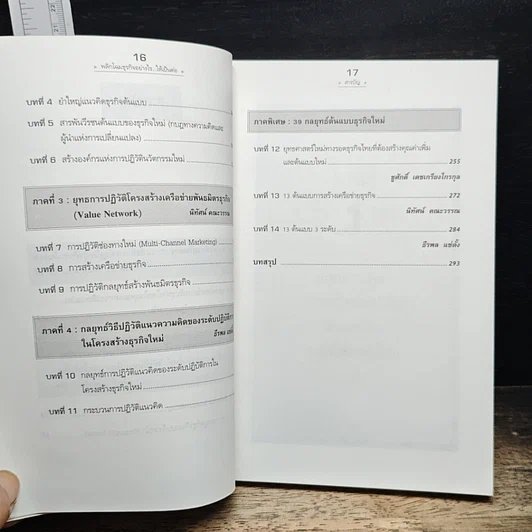 16
พลิกโฉมธุรกิจอย่างไร...ให้เป็นต่อ
บทที่ 4 ยำใหญ่แนวคิดธุรกิจต้นแบบ
บทที่ 5 สารพันวีรชนต้นแบบของธุรกิจใหม่ (กบฏทางความคิดและ
ผู้นำแห่งการเปลี่ยนแปลง)
บทที่ 6 สร้างองค์กรแห่งการปฏิวัตินวัตกรรมใหม่
ภาคที่ 3 : ยุทธการปฏิวัติโครงสร้างเครือข่ายพันธมิตรธุรกิจ
(Value Network) นิทัศน์ คณะวรรณ
บทที่ 7 การปฏิวัติช่องทางใหม่ (Multi-Channel Marketing)
บทที่ 8 การสร้างเครือข่ายธุรกิจ
บทที่ 9 การปฏิวัติกลยุทธ์สร้างพันธมิตรธุรกิจ
ภาคที่ 4 : กลยุทธ์วิธีปฏิวัติแนวความคิดของระดับปฏิบัติการ
ในโครงสร้างธุรกิจใหม่ ธีรพล
บทที่ 10 กลยุทธ์การปฏิวัติแนวคิดของระดับปฏิบัติการใน
โครงสร้างธุรกิจใหม่
บทที่ 11 กระบวนการปฏิวัติแนวคิด
17
สารบัญ
ภาคพิเศษ : 39 กลยุทธ์ต้นแบบธุรกิจใหม่
บทที่ 12 ยุทธศาสตร์ใหม่ทางรอดธุรกิจไทยที่ต้องสร้างคุณค่าเพิ่ม
และต้นแบบใหม่ 255
ชูศักดิ์ เดชเกรียงไกรกุล
บทที่ 13 13 ต้นแบบการสร้างเครือข่ายธุรกิจ 272
นิทัศน์ คณะวรรณ
บทที่ 14 13 ต้นแบบ 3 ระดับ 284
ธีรพล แซ่ตั้ง
บทสรุป 293